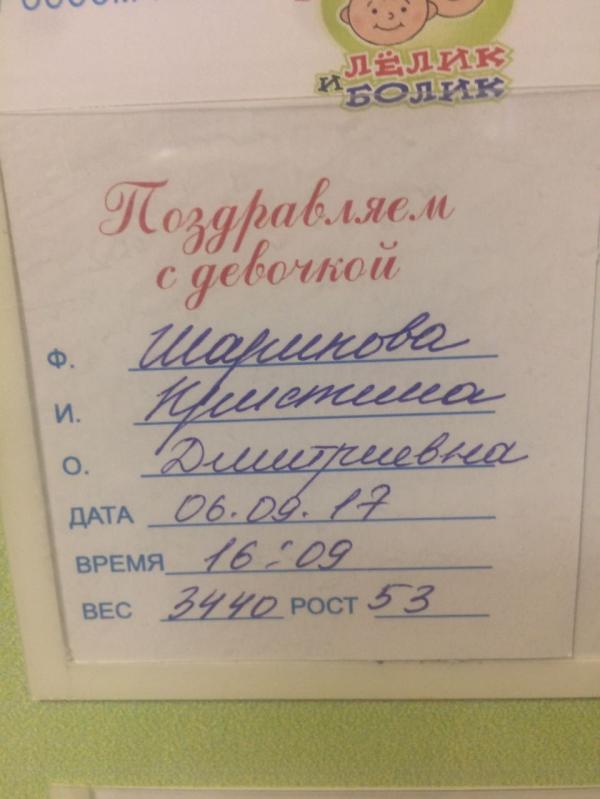 ЛЁЛИК
И БОЛИК
Поздравляем
с девочкой
Ф. Шарикова
И. Кристина
О. Дмитриевна
ДАТА 06.09.17
ВРЕМЯ 16:09
ВЕС 3440 РОСТ 53